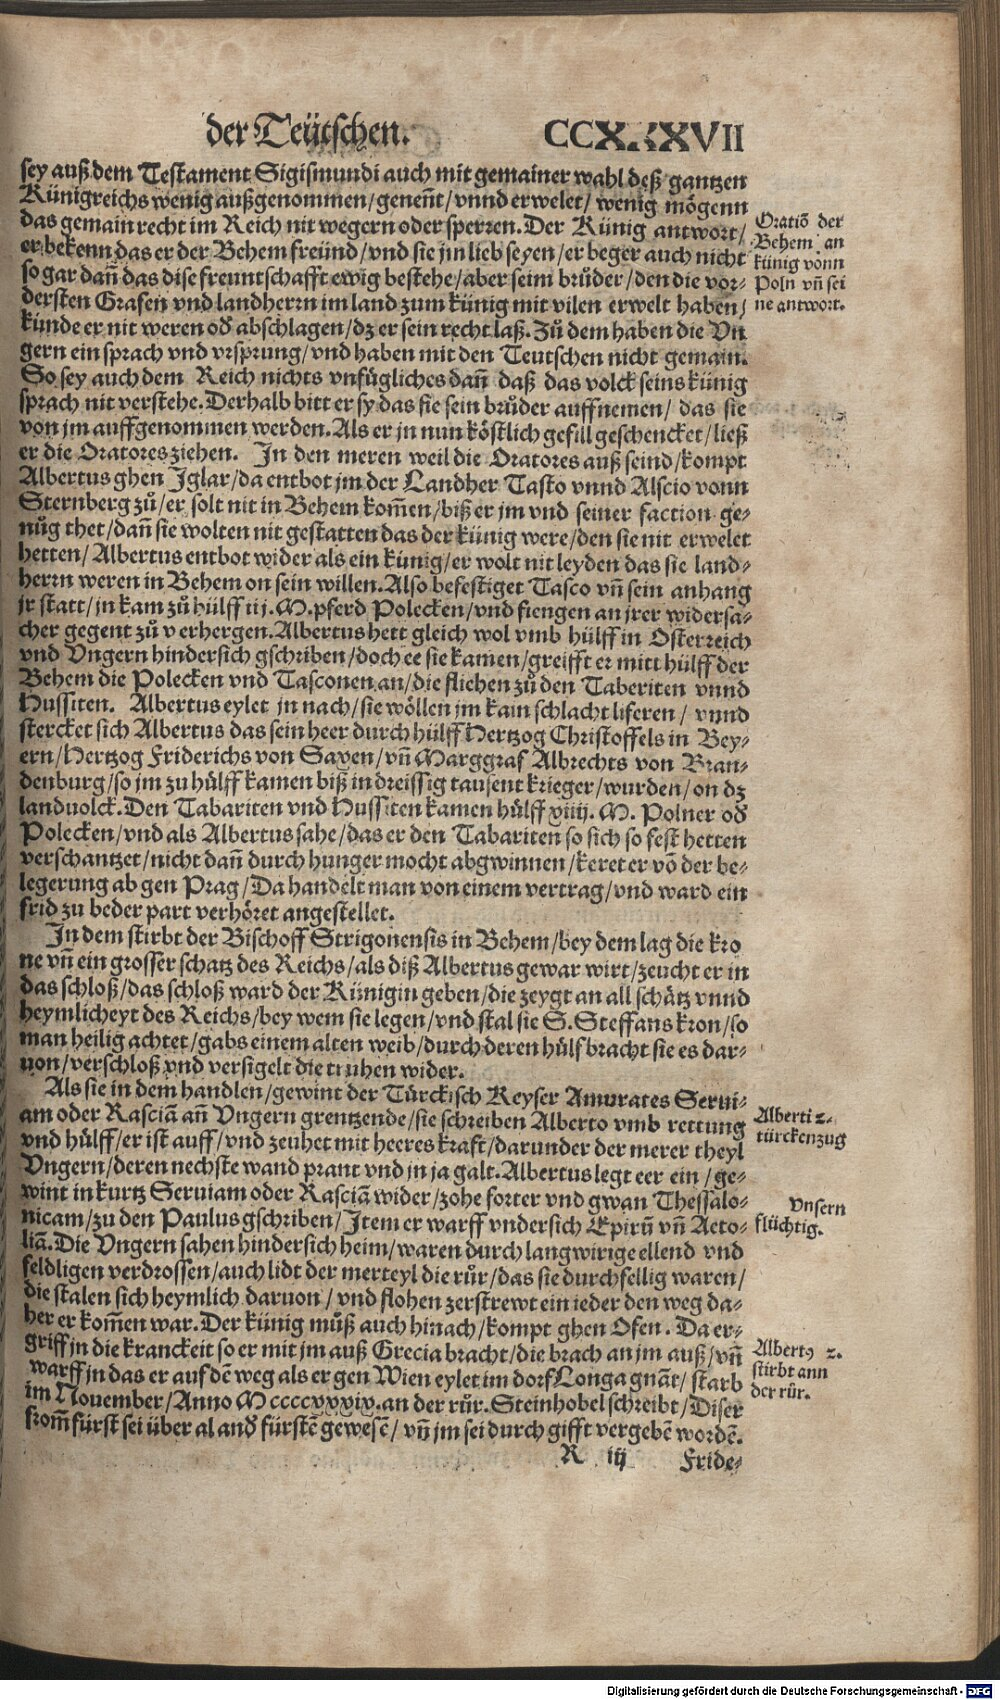 der Teütschen. CCXXXVII
sey auß dem Testament Sigismundi auch mit gemainer wahl deß gantzen
Künigreichs wenig außgenommen/genent/vnnd erwelet/ wenig mögenn
das gemain recht im Reich nit wegern oder sperren. Der Künig antwort/
er bekenn das er der Behem freünd/vnd sie jm lieb seyen/er beger auch nicht
so gar dañ das dise freuntschafft ewig bestehe/aber seim brůder/den die vor-
dersten Grafen vnd landherrn im land zum künig mit vilen erwelt haben/
künde er nit weren od abschlagen/dz er sein recht laß. Zů dem haben die Vn
gern ein sprach vnd vrsprung/vnd haben mit den Teutschen nicht gemain.
So sey auch dem Reich nichts vnfügliches dañ daß das volck seins künig
sprach nit verstehe. Derhalb bitt er sy das sie sein brůder auffnemen/ das sie
von jm auffgenommen werden. Als er jn nun köstlich gefill geschencket/ließ
er die Oratores ziehen. In den meren weil die Oratores auß seind/kompt
Albertus ghen Iglar/da entbot jm der Landher Tasko vnnd Alscio vonn
Sternberg zů/er solt nit in Behem kom̄en/biß er jm vnd seiner faction ge-
nůg thet/dañ sie wolten nit gestatten das der künig were/den sie nit erwelet
hetten/Albertus entbot wider als ein künig/er wolt nit leyden das sie land-
herrn weren in Behem on sein willen. Also befestiget Tasco vñ sein anhang
jr statt/jn kam zů hülff iij. M. pferd Polecken/vnd fiengen an jrer widersa-
cher gegent zů verhergen. Albertus hett gleich wol vmb hülff in Osterreich
vnd Vngern hindersich gschriben/doch ee sie kamen/greifft er mitt hülff der
Behem die Polecken vnd Tasconen an/die fliehen zů den Taberiten vnnd
Hussiten. Albertus eylet jn nach/sie wöllen jm kain schlacht liferen/ vnnd
stercket sich Albertus das sein heer durch hülff Hertzog Christoffels in Bey-
ern/Hertzog Friderichs von Saxen/vñ Marggraf Albrechts von Bran-
denburg/so jm zu hülff kamen biß in dreissig tausent krieger/wurden/on dz
landuolck. Den Tabariten vnd Hussiten kamen hülff xiiij. M. Polner od
Polecken/vnd als Albertus sahe/das er den Tabariten so sich so fest hetten
verschantzet/nicht dañ durch hunger mocht abgwinnen/keret er võ der be-
legerung ab gen Prag/Da handelt man von einem vertrag/vnd ward ein
frid zu beder part verhöret angestellet.
In dem stirbt der Bischoff Strigonensis in Behem/bey dem lag die kro
ne vñ ein grosser schatz des Reichs/als diß Albertus gewar wirt/zeucht er in
das schloß/das schloß ward der Künigin geben/die zeygt an all schätz vnnd
heymlicheyt des Reichs/bey wem sie legen/vnd stal sie S. Steffans kron/so
man heilig achtet/gabs einem alten weib/durch deren hülf bracht sie es dar-
uon/verschloß vnd versigelt die truhen wider.
Als sie in dem handlen/gewint der Türckisch Keyser Amurates Serui-
am oder Rasciã añ Vngern grentzende/sie schreiben Alberto vmb rettung
vnd hülff/er ist auff/vnd zeuhet mit heeres kraft/darunder der merer theyl
Vngern/deren nechste wand prant vnd jn ja galt. Albertus legt eer ein/ge-
wint in kurtz Seruiam oder Rasciã wider/zohe forter vnd gwan Thessalo-
nicam/zu den Paulus gschriben/Item er warff vndersich Epirũ vñ Aeto-
liã. Die Vngern sahen hindersich heim/waren durch langwirige ellend vnd
feldligen verdrossen/auch lidt der merteyl die růr/das sie durchfellig waren/
die stalen sich heymlich daruon/ vnd flohen zerstrewt ein ieder den weg da-
her er kom̄en war. Der künig můß auch hinach/kompt ghen Ofen. Da er-
griff jn die kranckeit so er mit jm auß Grecia bracht/die brach an jm auß/vñ
warff jn das er auf dẽ weg als er gen Wien eylet im dorf Longa gnãt/ starb
im Nouember/Anno Mccccxxxix. an der růr. Steinhobel schreibt/Diser
from̄ fürst sei über al and fürstẽ gewesẽ/ vñ jm sei durch gifft vergebẽ wordẽ.
R iij Fride-
Oratiõ der
Behem an
künig vonn
Poln vñ sei
ne antwort.
Alberti 2.
türckenzug
Vnsern
flüchtig.
Albertꝯ 2.
stirbt ann
der růr.
Digitalisierung gefördert durch die Deutsche Forschungsgemeinschaft - DFG